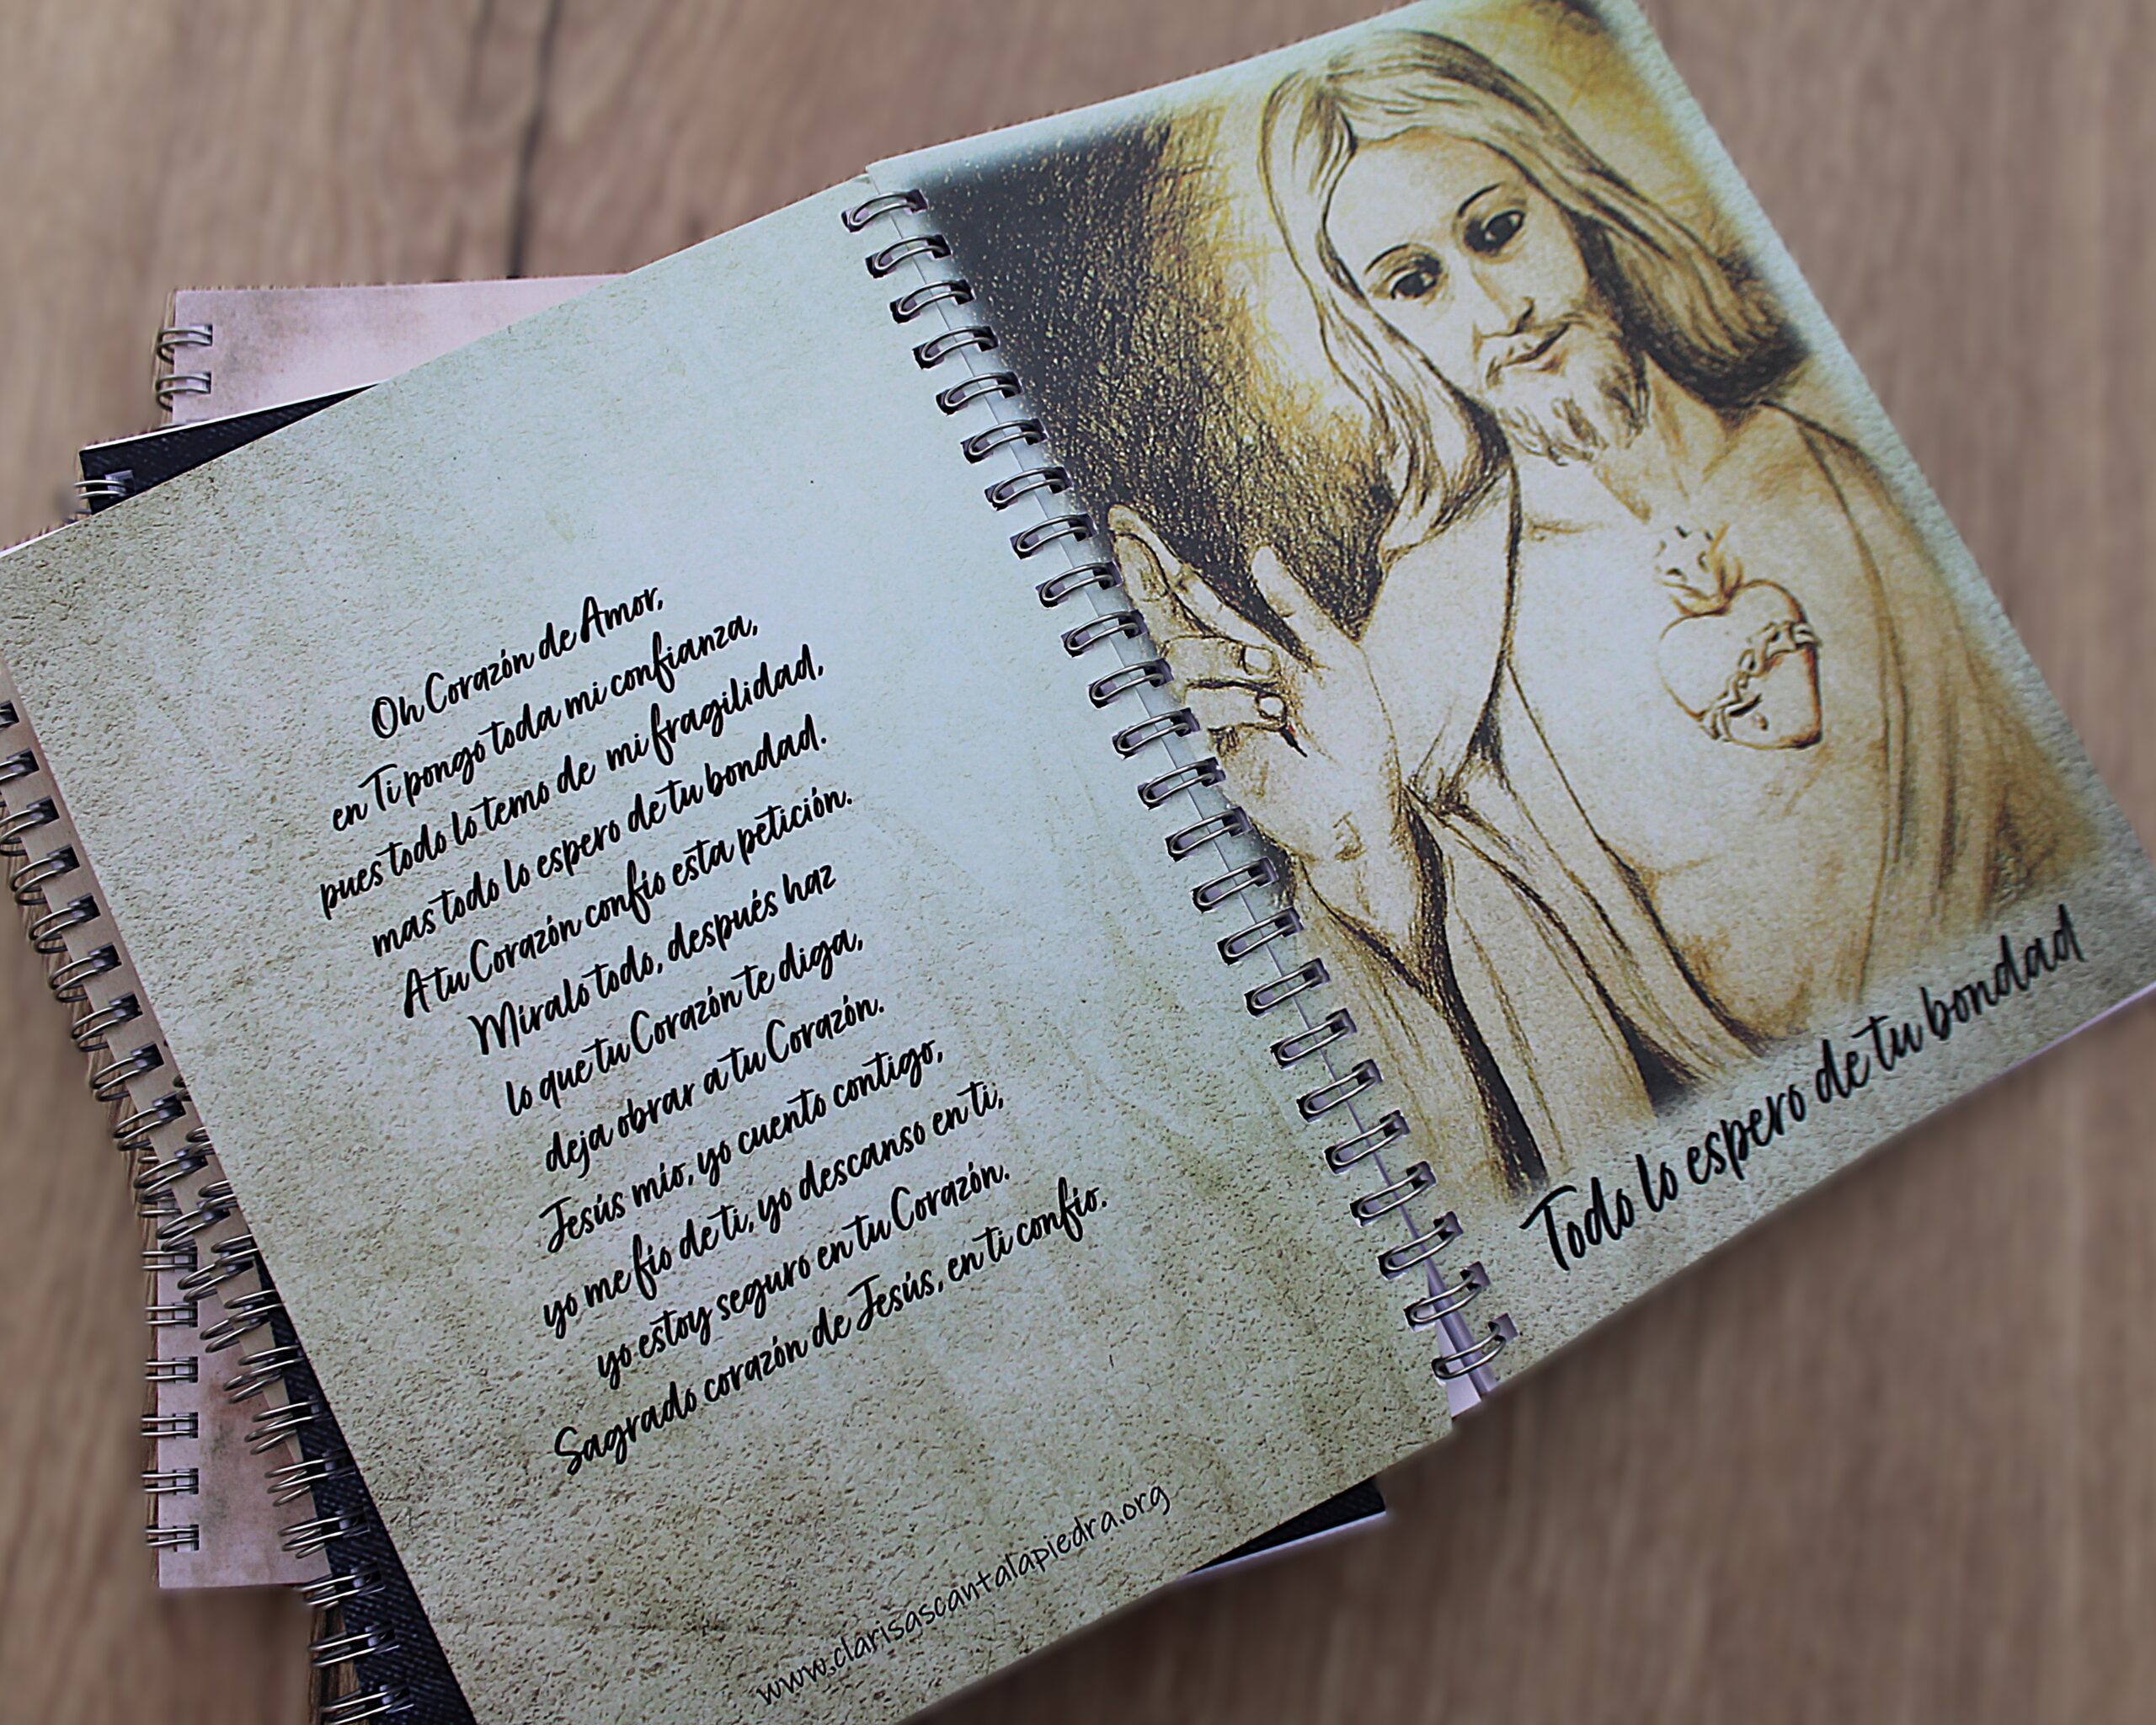 Oh Corazón de Amor,
en Ti pongo toda mi confianza,
pues todo lo temo de mi fragilidad,
mas todo lo espero de tu bondad.
A tu Corazón confío esta petición.
Míralo todo, después haz
lo que tu Corazón te diga,
deja obrar a tu Corazón.
Jesús mío, yo cuento contigo,
yo me fío de ti, yo descanso en ti,
yo estoy seguro en tu Corazón.
Sagrado corazón de Jesús, en ti confío.
www.clarisascantalapiedra.org
Todo lo espero de tu bondad